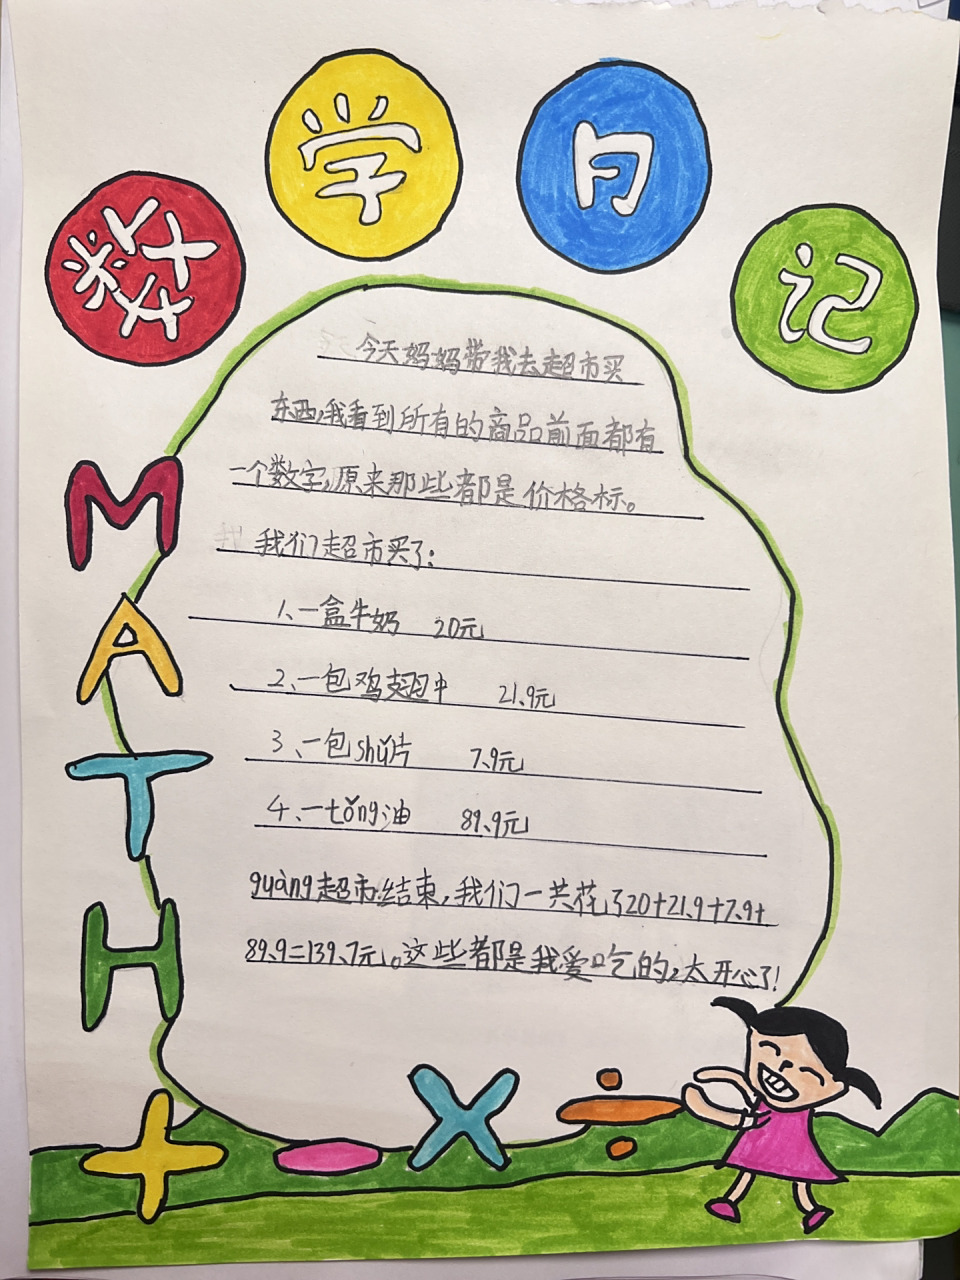 数学日记
今天妈妈带我去超市买
东西,我看到所有的商品前面都有
一个数字,原来那些都是价格标。
我们超市买了:
1、一盒牛奶 20元
2、一包鸡翅中 21.9元
3、一包shǔ片 7.9元
4、一tǒng油 89.9元
guàng超市结束,我们一共花了20+21.9+7.9+
89.9=139.7元。这些都是我爱吃的,太开心了!
MATH
+ - × ÷